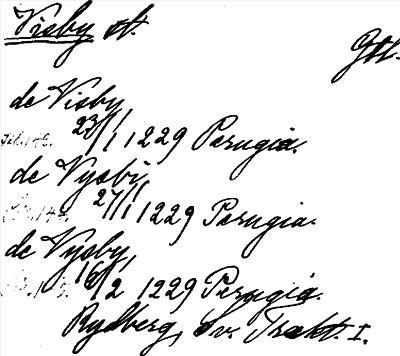 Visby st. Gtl.
de Visby
23/1 1229 Perugia.
de Vysbi
27/1 1229 Perugia.
de Vysby,
16/2 1229 Perugia.
Rydberg, Sv. Trakt. I.